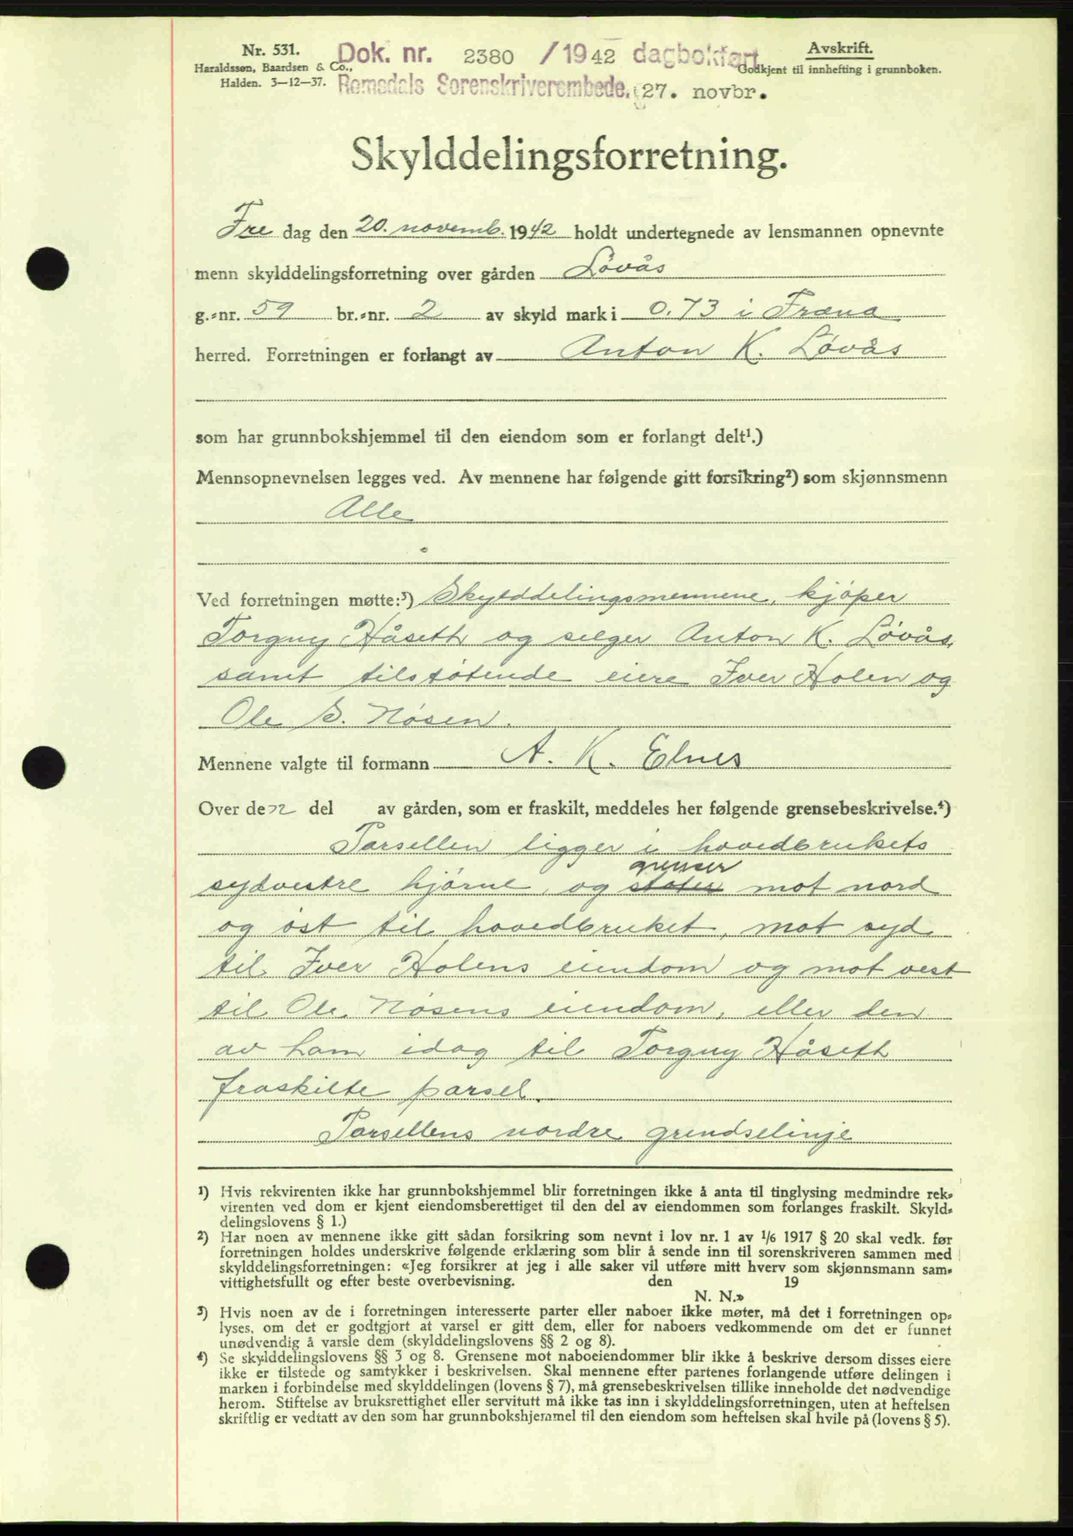 Nr. 531.
Haraldssøn, Baardsen & Co.,
Halden. 3—12—37.
Dok. nr. 2380 /1942 dagbokført
Romsdals Sorenskriverembede. 27. novbr.
Avskrift.
Godkjent til innhefting i grunnboken.
Skylddelingsforretning.
Fre dag den 20. novemb. 1942 holdt undertegnede av lensmannen opnevnte
menn skylddelingsforretning over gården Løvås
g.-nr. 59 br.-nr. 2 av skyld mark i 0.73 i Fræna
herred. Forretningen er forlangt av Anton K. Løvås
som har grunnbokshjemmel til den eiendom som er forlangt delt¹.)
Mennsopnevnelsen legges ved. Av mennene har følgende gitt forsikring²) som skjønnsmenn
Alle
Ved forretningen møtte:³) Skylddelingsmennene, kjøper
Torguy Håseth og selger Anton K. Løvås,
samt tilstøtende eiere Iver Holen og
Ole S. Nøsen.
Mennene valgte til formann A. K. Elnes
Over den del av gården, som er fraskilt, meddeles her følgende grensebeskrivelse.⁴)
Parsellen ligger i hovedbrukets
grenser
sydvestre hjørne, og støter mot nord
og øst til hovedbruket, mot syd
til Iver Holens eiendom og mot vest
til Ole Nøsens eiendom, eller den
av ham idag til Torguy Håseth
fraskilte parsel.
Parsellens nordre grendselinje
¹) Hvis rekvirenten ikke har grunnbokshjemmel blir forretningen ikke å anta til tinglysing medmindre rek-
virenten ved dom er kjent eiendomsberettiget til den del av eiendommen som forlanges fraskilt. Skyld-
delingslovens § 1.)
²) Har noen av mennene ikke gitt sådan forsikring som nevnt i lov nr. 1 av 1/6 1917 § 20 skal vedk. før
forretningen holdes underskrive følgende erklæring som blir å sende inn til sorenskriveren sammen med
skylddelingsforretningen: «Jeg forsikrer at jeg i alle saker vil utføre mitt hverv som skjønnsmann sam-
vittighetsfullt og efter beste overbevisning. den 19
N. N.»
³) Hvis noen av de i forretningen interesserte parter eller naboer ikke møter, må det i forretningen op-
lyses, om det er godtgjort at varsel er gitt dem, eller for naboers vedkommende om det er funnet
unødvendig å varsle dem (skylddelingslovens §§ 2 og 8).
⁴) Se skylddelingslovens §§ 3 og 8. Grensene mot naboeiendommer blir ikke å beskrive dersom disses eiere
ikke er tilstede og samtykker i beskrivelsen. Skal mennene efter partenes forlangende utføre delingen i
marken i forbindelse med skylddelingen (lovens § 7), må grensebeskrivelsen tillike inneholde det nødvendige
herom. Stiftelse av bruksrettighet eller servitutt må ikke tas inn i skylddelingsforretningen, uten at heftelsen
skriftlig er vedtatt av den som har grunnbokshjemmel til den eiendom som heftelsen skal hvile på (lovens § 5).